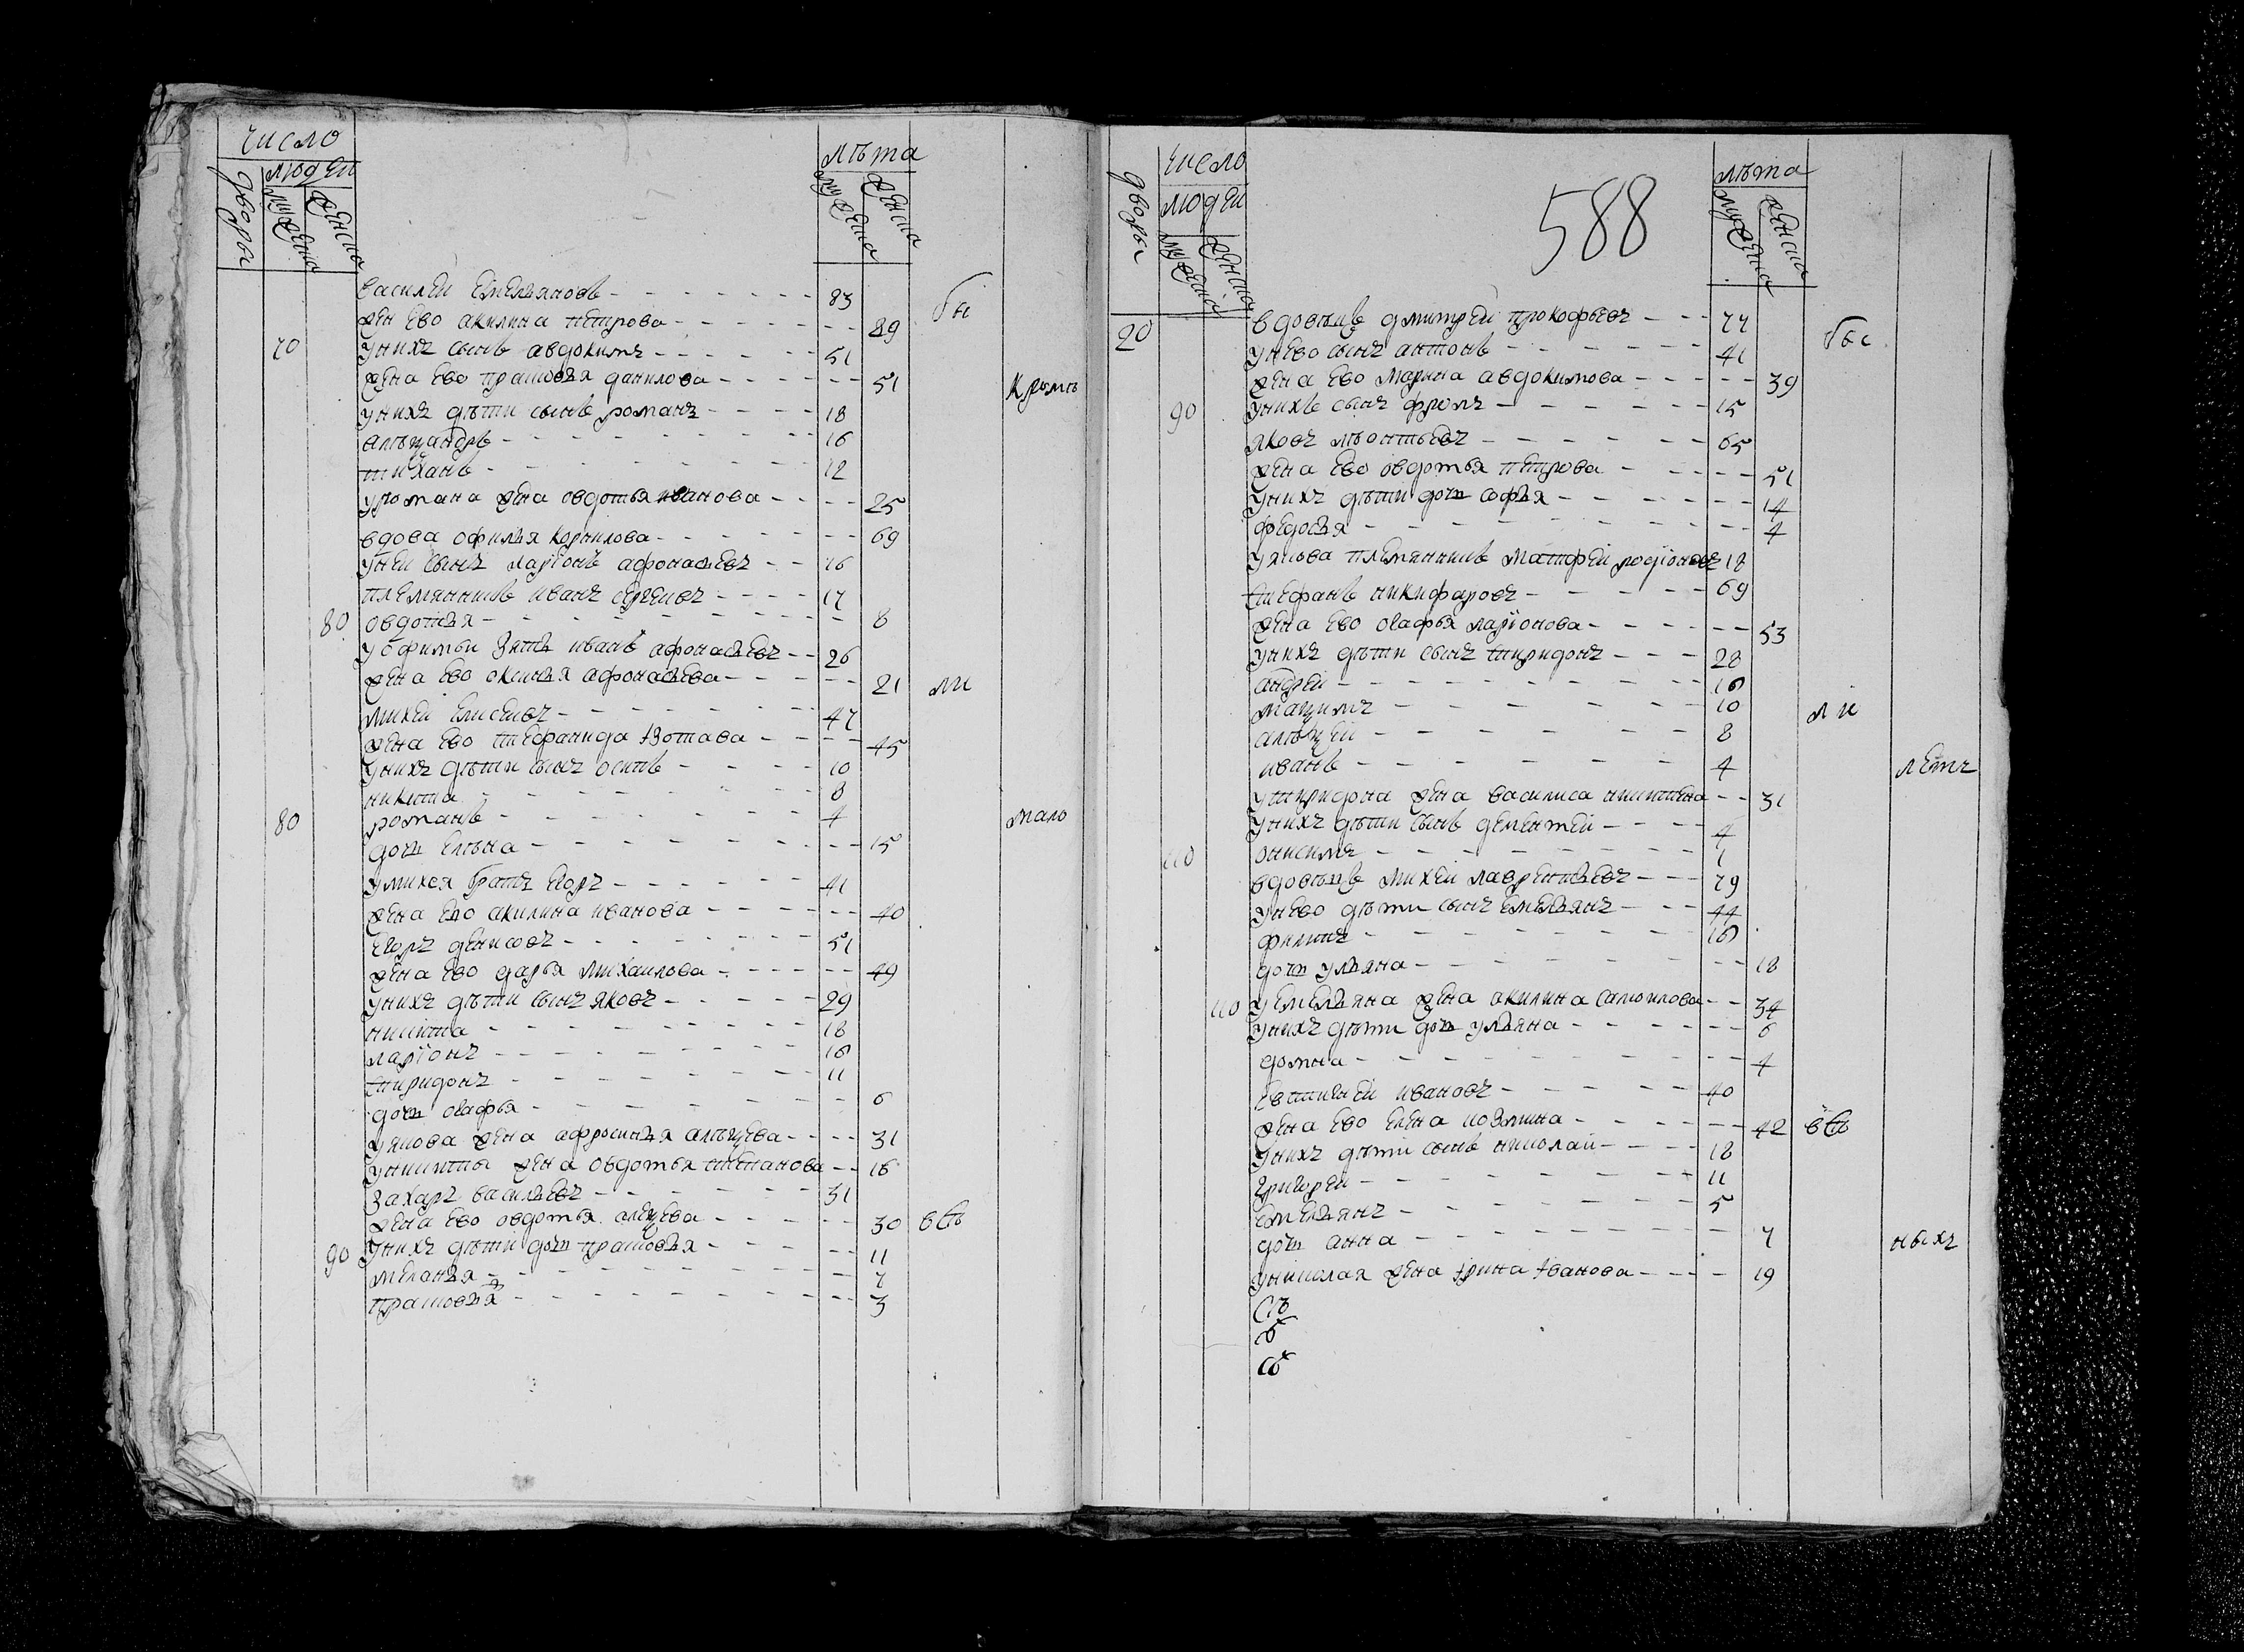 число
людей
дворы
мужеска
женска
лѣта
мужеска
женска
василей емельяновъ - 83 бы
жен ево акилина петрова - 89
70 у них сынъ авдокимъ - 51
жена ево прасковья данилова - 51 кромѣ
у нихъ дѣти сынъ романъ - 18
алѣѯандръ - 16
12
у романа жена овдотья иванова - 25
вдова офимья корнилова - 69
у ней сынъ ларїонъ афонасьевъ - 16
племянникъ иванъ сергеевъ - 17
80 овдотья - 8
у офимьи зять иванъ афонасьевъ - 26
жена ево оксинья афонасьева - 21 ли
михей елисеевъ - 47
жена ево степанида изотава - 45
у нихъ дѣти сынъ осипъ - 10
никита - 8
80 романъ - 4 мало
дочь елѣна - 15
у михея братъ егоръ - 41
жена ево акилина иванова - 40
егоръ денисовъ - 51
жена ево дарья михаилова - 49
у нихъ дѣти сынъ яковъ - 29
никита - 18
ларїонъ - 16
спиридонъ - 11
дочь огафья - 6
у якова жена афросинья алѣѯева - 31
у никиты жена овдотья степанова - 16
захаръ васильевъ - 31
жена ево овдотья алеѯева - 30 въ
90 у нихъ дѣти дочь прасковья - 11
меланья - 7
прасковья - 3
число
людей
дворы
мужеска
женска
588
лѣта
мужеска
женска
20 вдовецъ дмитрей прокофьевъ - 77 бы с
у нево сынъ антонъ - 41
жена ево марина авдокимова - 39
90 у нихъ сынъ фролъ - 15
яковъ лѣонтьевъ - 65
жена ево овдотья петрова - 51
у нихъ дѣти дочь софья - 14
федосья - 4
у якова племянникъ матфей родїоновъ 18
стефанъ никифаровъ - 69
жена ево огафья ларїонова - 53
у нихъ дѣти сынъ спиридонъ - 28
андрей - 16
маѯимъ - 10 ли
алѣѯей - 8
иванъ - 4 летъ
у спиридона жена василиса никитена - 31
у нихъ дѣти сынъ дементей - 4
110 онисимъ - 1
вдовецъ михей лаврентьевъ - 79
у нево дѣти сынъ емельянъ - 44
филипъ - 16
дочь ульяна - 18
110 у емельяна жена акилина самоилова - 34
у нихъ дѣти дочь ульяна - 6
домна - 4
евтигней ивановъ - 40
жена ево елена козмина - 42 въ
у нихъ дѣти сынъ николай - 18
григорей - 11
емельянъ - 5
дочь анна - 7 ныхъ
у николая жена ирина иванова - 19